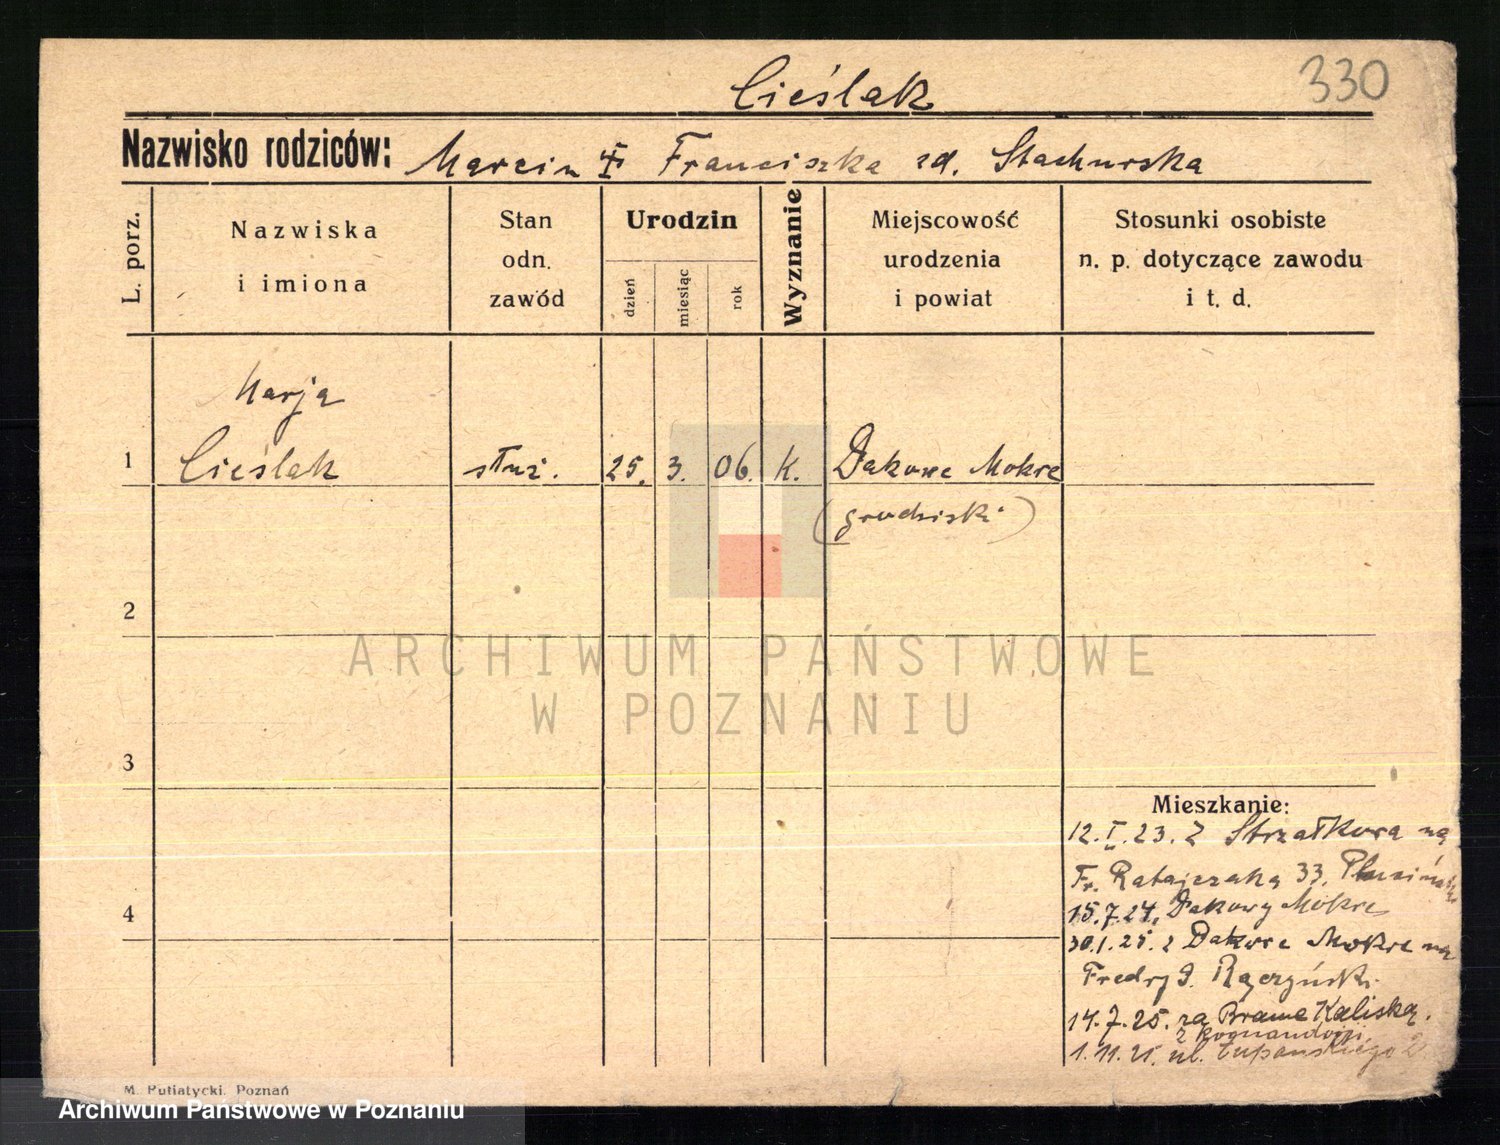 Cieślak
330
Nazwisko rodziców: Marcin i Franciszka zd. Stachurska
L. porz.
Nazwiska
i imiona
Stan
odn.
zawód
Urodzin
dzień
miesiąc
rok
Wyznanie
Miejscowość
urodzenia
i powiat
Stosunki osobiste
n. p. dotyczące zawodu
i t. d.
Marja
1 Cieślak służ. 25. 3. 06. K. Dakowe Mokre
(grodziski)
2
ARCHIWUM PAŃSTWOWE
W POZNANIU
3
Mieszkanie:
12.I.23. z Strzałkowa na
Fr. Ratajczaka 33.
4
15.7.24. Dakowy Mokre
30.1.25. z Dakowe Mokre na
Fredry 9. Rączyński.
14.7.25. za Brama Kaliską.
z Komandorji
1.11.25. ul. Łupańskiego 2
M. Putiatycki, Poznań
Archiwum Państwowe w Poznaniu